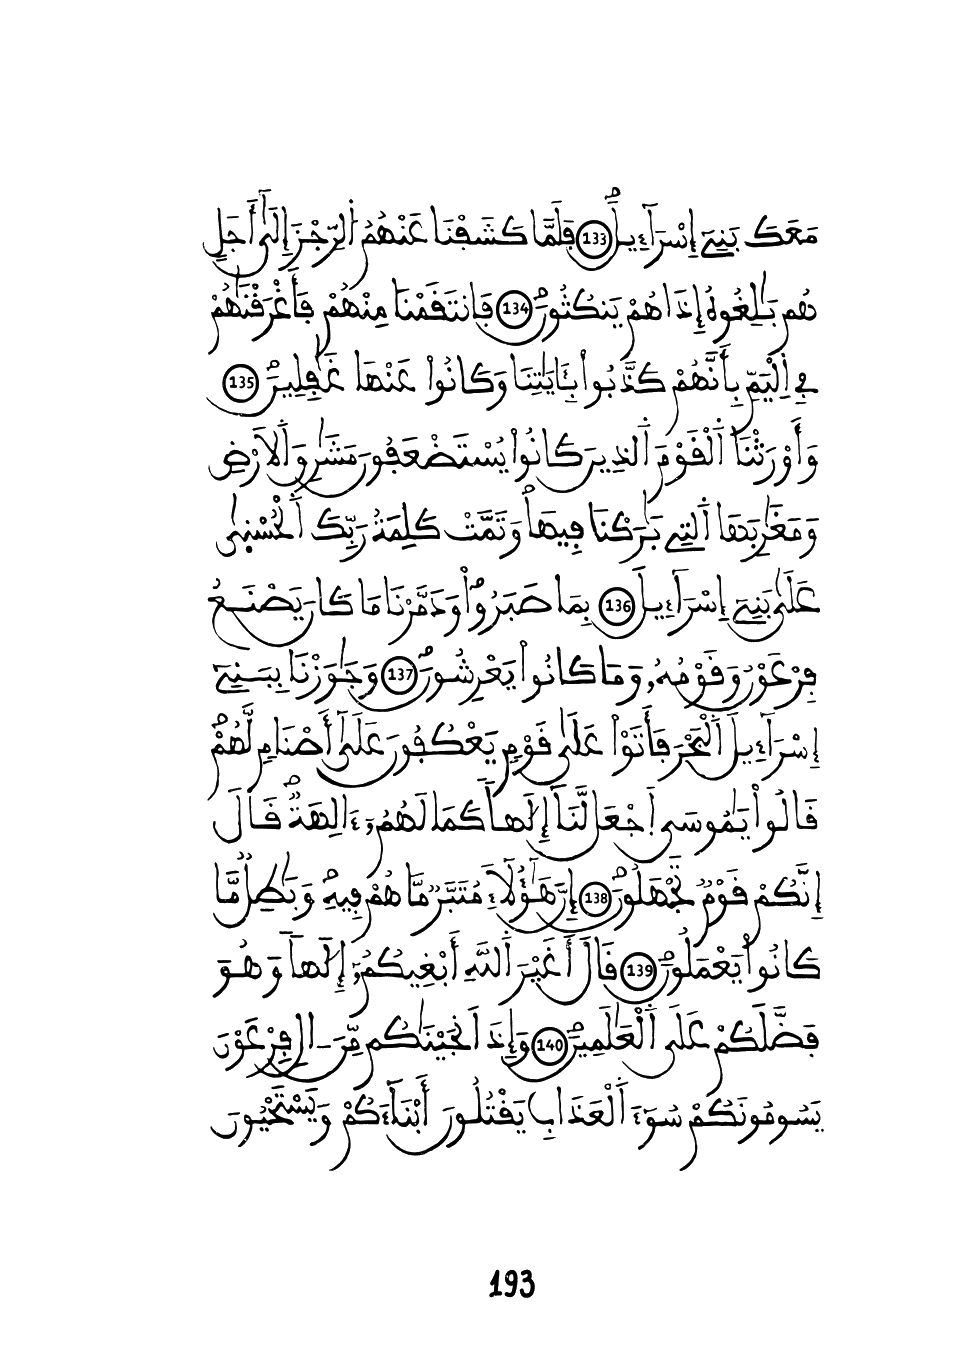 مَعَكَ بَنِےٓ إِسْرَآءِيلَۖ 133 فَلَمَّا كَشَفْنَا عَنْهُمُ اُ۬لرِّجْزَ إِلَىٰٓ أَجَلٍ
هُم بَٰلِغُوهُ إِذَا هُمْ يَنكُثُونَۖ 134 فَانتَقَمْنَا مِنْهُمْ فَأَغْرَقْنَٰهُمْ
فِے اِ۬لْيَمِّ بِأَنَّهُمْ كَذَّبُواْ بِـَٔايَٰتِنَا وَكَانُواْ عَنْهَا غَٰفِلِينَۖ 135
وَأَوْرَثْنَا اَ۬لْقَوْمَ اَ۬لذِينَ كَانُواْ يُسْتَضْعَفُونَ مَشَٰرِقَ اَ۬لَارْضِ
وَمَغَٰرِبَهَا اَ۬لتِے بَٰرَكْنَا فِيهَاۖ وَتَمَّتْ كَلِمَةُ رَبِّكَ اَ۬لْحُسْنَىٰ
عَلَىٰ بَنِےٓ إِسْرَآءِيلَ 136 بِمَا صَبَرُواْۖ وَدَمَّرْنَا مَا كَانَ يَصْنَعُ
فِرْعَوْنُ وَقَوْمُهُۥ وَمَا كَانُواْ يَعْرِشُونَۖ 137 وَجَٰوَزْنَا بِبَنِےٓ
إِسْرَآءِيلَ اَ۬لْبَحْرَ فَأَتَوْاْ عَلَىٰ قَوْمٍ يَعْكُفُونَ عَلَىٰٓ أَصْنَامٍ لَّهُمْۖ
قَالُواْ يَٰمُوسَى اَ۪جْعَل لَّنَآ إِلَٰهاٗ كَمَا لَهُمُۥٓ ءَالِهَةٞۖ قَالَ
إِنَّكُمْ قَوْمٞ تَجْهَلُونَۖ 138 إِنَّ هَٰٓؤُلَآءِ مُتَبَّرٞ مَّا هُمْ فِيهِۖ وَبَٰطِلٞ مَّا
كَانُواْ يَعْمَلُونَۖ 139 قَالَ أَغَيْرَ اَ۬للَّهِ أَبْغِيكُمُۥٓ إِلَٰهاٗ وَهُوَ
فَضَّلَكُمْ عَلَى اَ۬لْعَٰلَمِينَۖ 140 وَإِذَ اَنجَيْنَٰكُم مِّنَ اٰلِ فِرْعَوْنَ
يَسُومُونَكُمْ سُوٓءَ اَ۬لْعَذَابِ يَقْتُلُونَ أَبْنَآءَكُمْ وَيَسْتَحْيُونَ
193